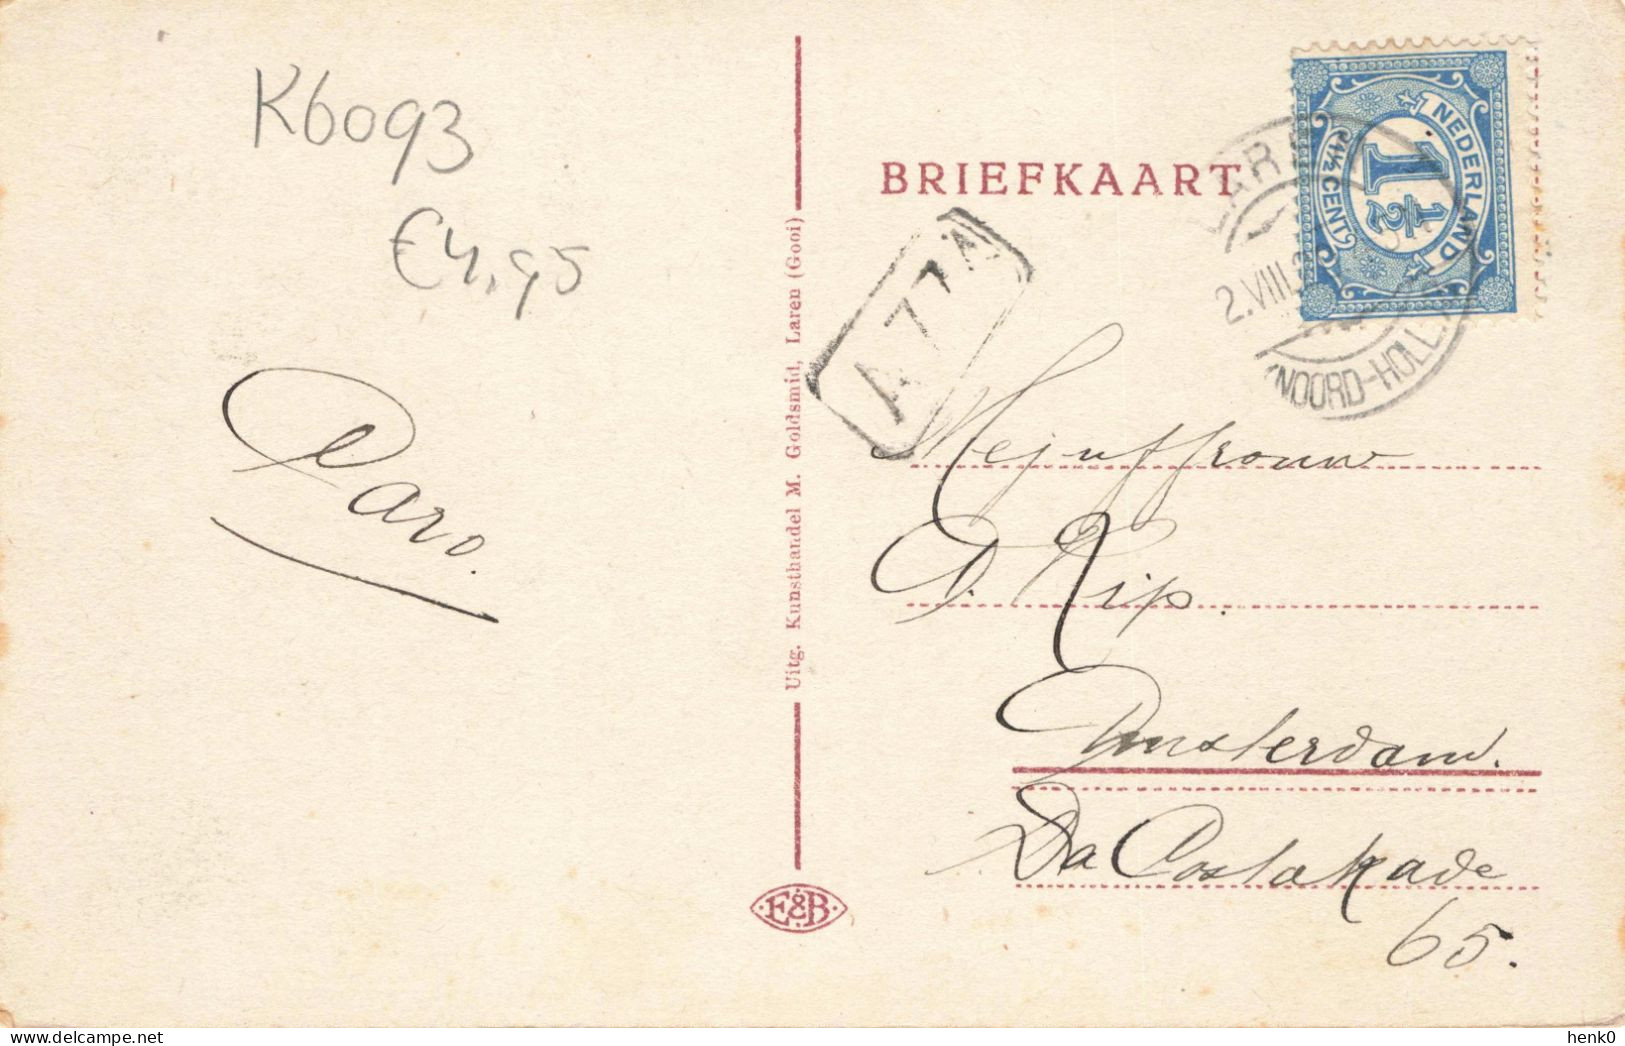 K6093
€4,95
Caro.
Uitg. Kunsthandel M. Goldsmid, Laren (Gooi)
E&B
BRIEFKAART
NEDERLAND
1½
1½ CENT
LAREN
2.VIII
(NOORD-HOLL.)
A77A
Mejuffrouw
D. Kip.
Amsterdam.
Da Costakade
65.
henk0